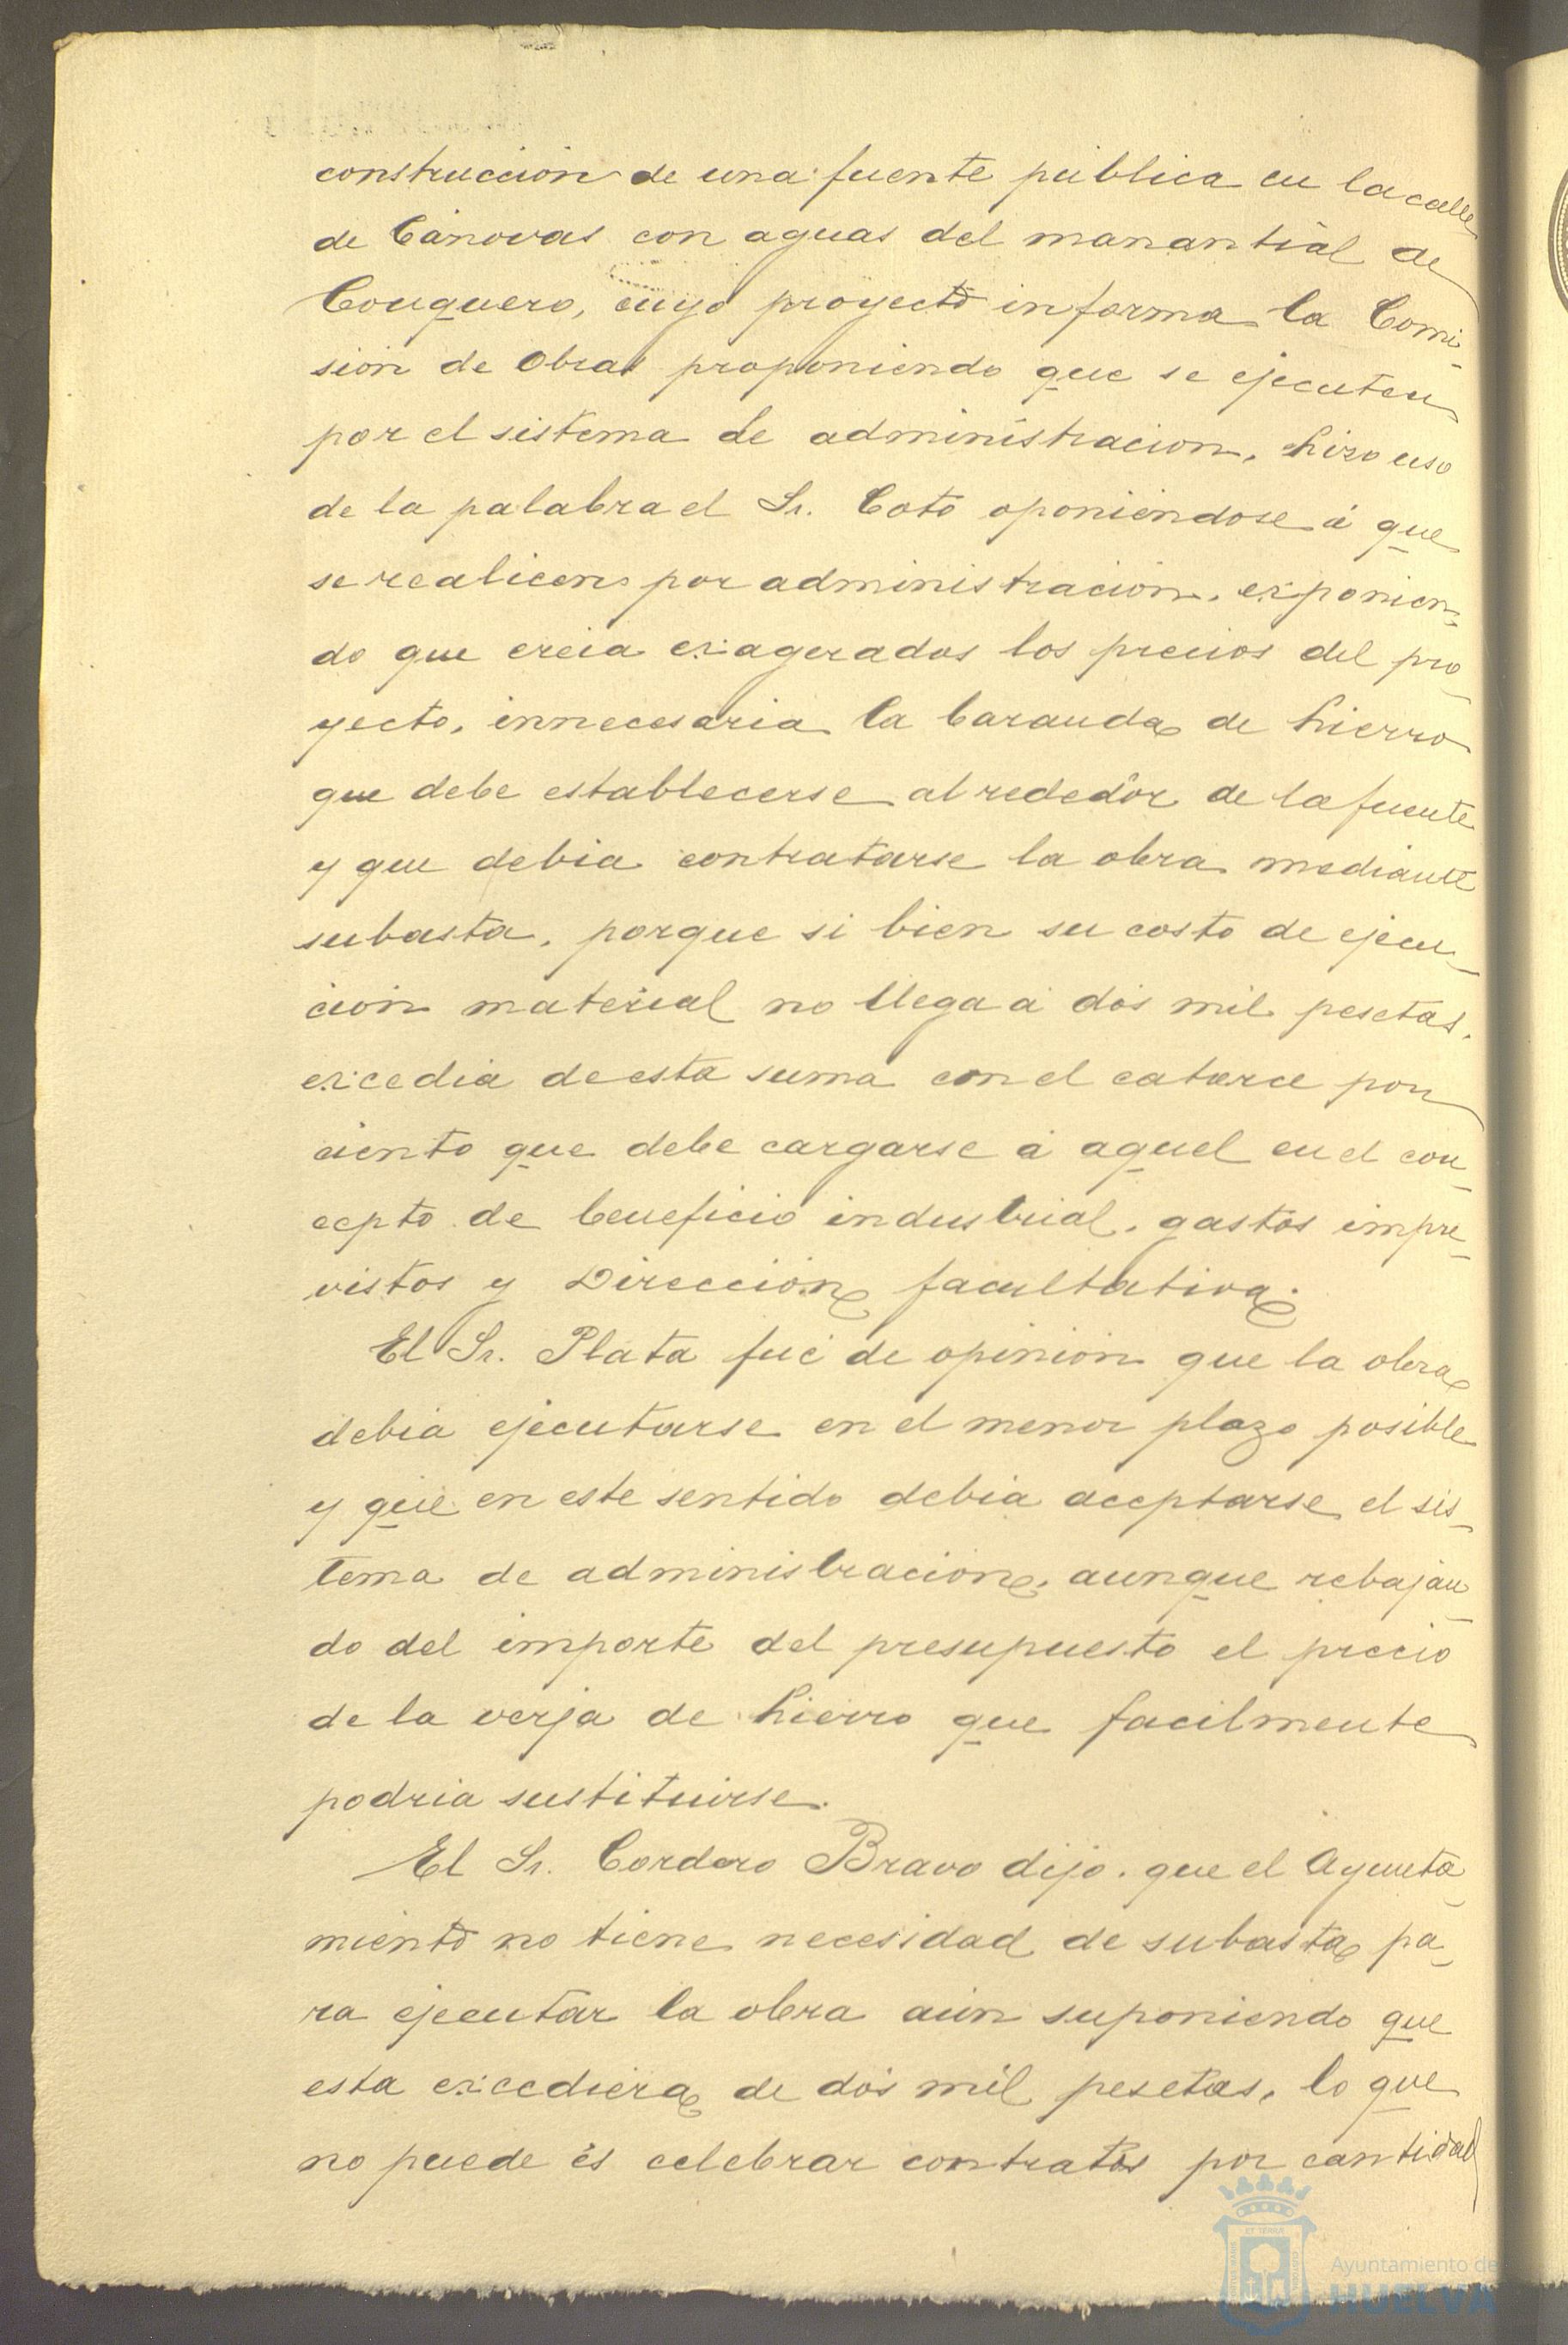 construcción de una fuente pública en la calle
de Cánovas con aguas del manantial de
Conquero, cuyo proyecto informa la Comi-
sión de Obras proponiendo que se ejecuten
por el sistema de administracion, hizo uso
de la palabra el Sr. Coto oponiendose á que
se realicen por administración, exponien-
do que creia exagerados los precios del pro-
yecto, innecesaria la baranda de hierro
que debe establecerse alrededor de la fuente
y que debia contratarse la obra mediante
subasta, porque si bien su costo de ejecu-
ción material no llega á dos mil pesetas,
excedia de esta suma con el catorce por
ciento que debe cargarse á aquel en el con-
cepto de beneficio industrial, gastos impre-
vistos y Dirección facultativa.
El Sr. Plata fué de opinion que la obra
debia ejecutarse en el menor plazo posible
y que en este sentido debia aceptarse el sis-
tema de administración, aunque rebajan-
do del importe del presupuesto el precio
de la verja de hierro que facilmente
podria sustituirse.
El Sr. Cordero Bravo dijo, que el Ayunta-
miento no tiene necesidad de subasta pa-
ra ejecutar la obra aún suponiendo que
esta excediera de dos mil pesetas, lo que
no puede és celebrar contratos por cantidad
Ayuntamiento de
HUELVA